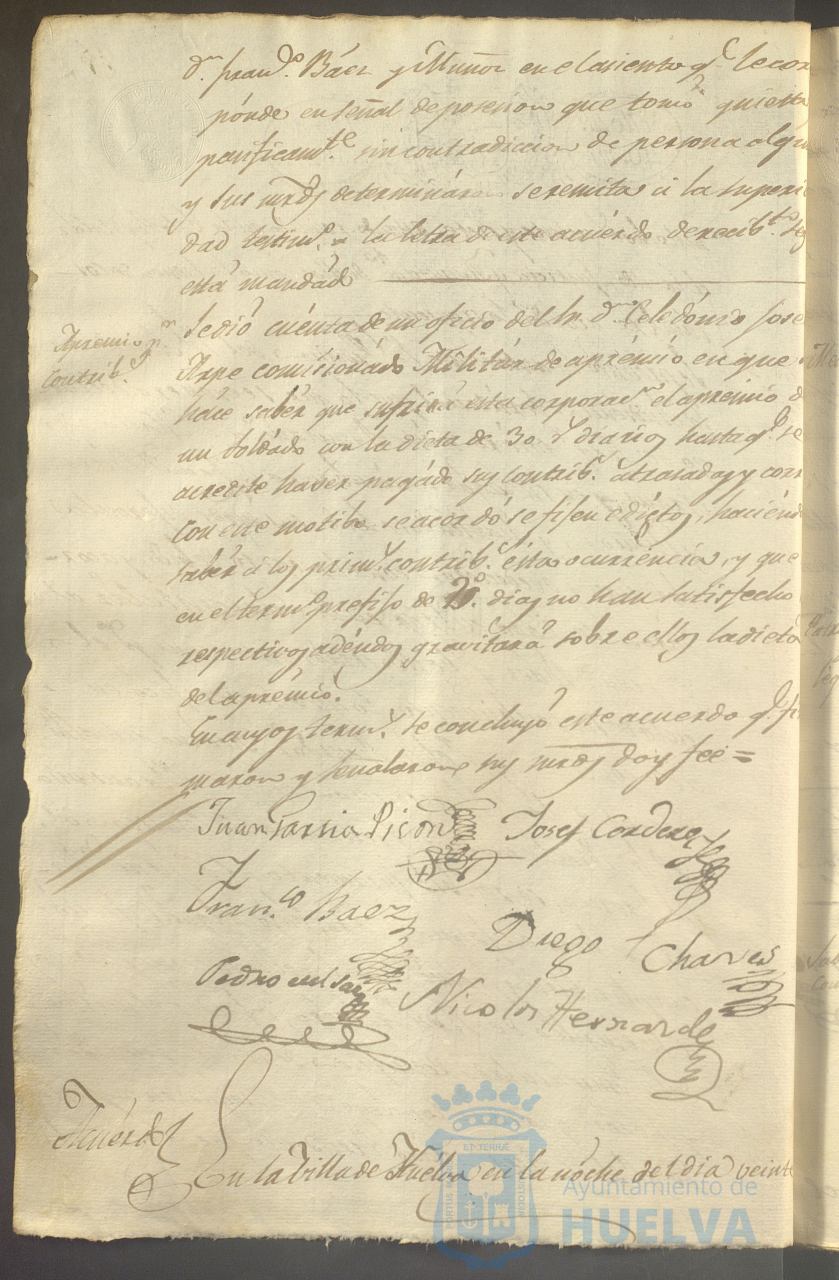 dn. franco. Báez y Muñoz en el asiento qe. le cor
pónde en señal de posesion que tomó quieta
pacificamte. sin contradiccion de persona algu
y sus mrds determináron se remita á la superi
dad testimo. a la letra de este acuérdo de recibto. seg
está mandádo
Apremio pr.
contribs.
Se dió cuénta de un oficio del Sr. dn. Celedónio Jose
Arpe comicionádo Militár de aprémio en que
háce sabér que sufrirá esta corporacn. el apremio d
un soldádo con la dieta de 30 rs. diarios hasta qe. se
acredite haver pagádo sus contribs. atrasadas y corr
Con este motibo se acordó se fisen edictos, haciénd
sabér á los prims. contribs. ésta ocurréncia, y que
en el termo. prefiso de días no han satisfecho
respectivos adéudos gravitará sobre ellos la dieta
del aprémio.
En cuyos terms. se concluyó este acuerdo qe. fir
maron y señalaron sus mrds doy fee =
Juan Garcia Pison Josef Cordero
Franco. Baez
Diego Chaves
Pedro
Nicolas Hernandez
Acuérdo
En la Villa de Huélva en la nóche del dia veinte
ET TERRÆ
Ayuntamiento de
HUELVA